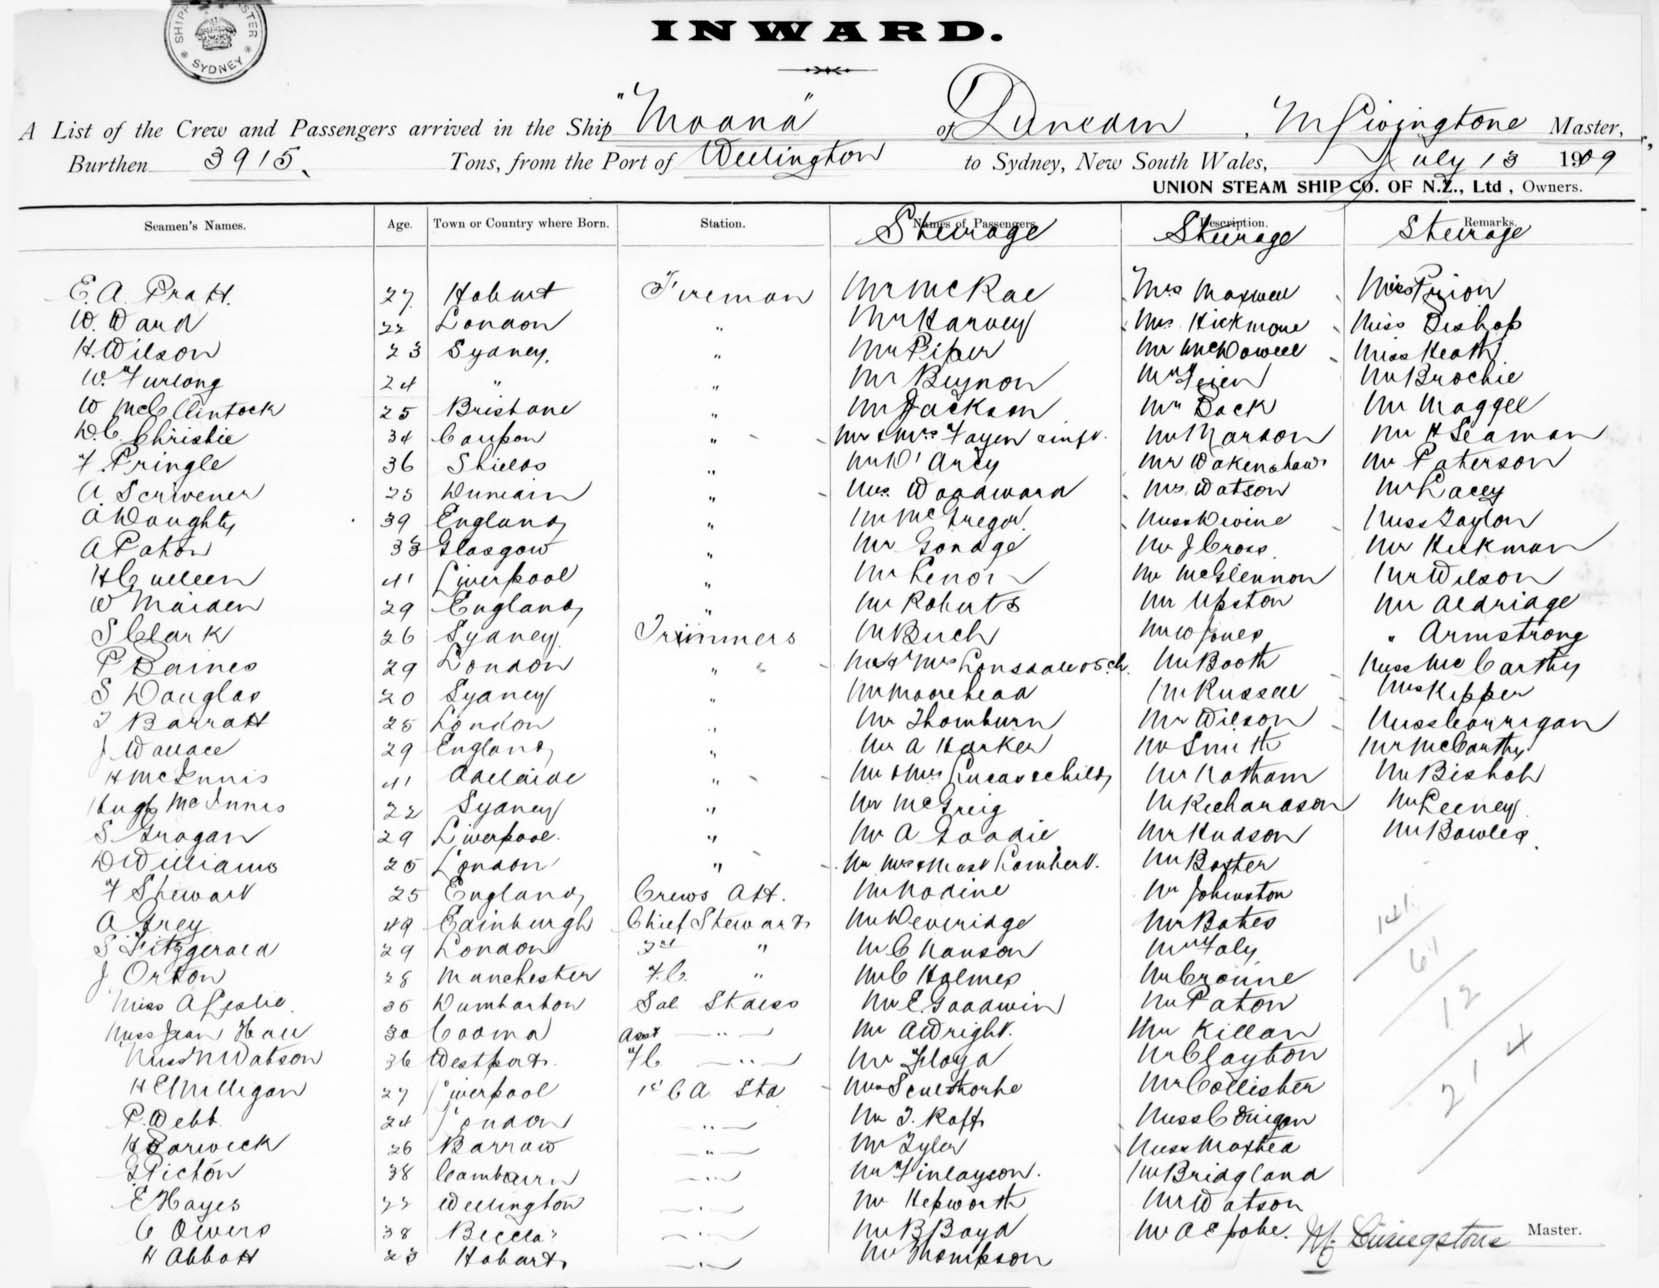 SHIPPING MASTER
SYDNEY
INWARD.
A List of the Crew and Passengers arrived in the Ship "Moana" of Duncan, M Livingtone Master,
Burthen 3915. Tons, from the Port of Wellington to Sydney, New South Wales, July 13 1909
UNION STEAM SHIP CO. OF N.Z., Ltd, Owners.
Seamen's Names. Age. Town or Country where Born. Station. Names of Passengers. Description. Remarks.
Steerage Steerage Steerage
E. A. Pratt. 27 Hobart Fireman Mr McRae Mrs Maxwell Miss Prion
W. Ward 22 London " Mr Harvey Mrs Hickmore Miss Bishop
H. Wilson 23 Sydney. " Mr Piper Mr McDowell Miss Heath
W. Furlong 24 " " Mr Beynon Mr Mr Brochie
W McClintock 25 Brisbane " Mr Jackson Mr Dack Mr Maggee
D.C. Christie 34 " Mr & Mrs Fayen inft. Mr Marson Mr H Seaman
F. Pringle 36 Shields " Mr D'Arcy Mr Wakenshaw Mr Paterson
A. Scrivener 25 Dunedin " Mrs. Woodward Mrs Watson Mr Lacey
A Doughty 39 England " Mr McGregor Miss Divine Miss Taylor
A Paton 33 Glasgow " Mr Mr J Cross. Mr Heckman
H Culleen 41 Liverpool " Mr Lenor Mr McGlennon Mr Wilson
W Maiden 29 England " Mr Roberts Mr Upston Mr Aldridge
S Clark 26 Sydney Trimmers M Buch Mr W Jones " Armstrong
P Baines 29 London " " Mr & Mrs Lonsdale Mr Booth Miss McCarthy
S Douglas 20 Sydney " Mr Moorehead Mr Russell Mrs Kipper
T Barratt 25 London " Mr Thornburn Mr Wilson Miss Corrigan
J Wallace 29 England " Mr A Harker Mr Smith Mr McCarthy
H McInnis 41 Adelaide " Mr & Mrs Lucas & child Mr Natham Mr Bishop
Hugh McInnis 22 Sydney " Mr McGreig M Richardson Mr Leeney
S. Grogan 29 Liverpool. " Mr A Goodie Mr Hudson Mr Bowles.
D Williams 25 London " Mr Mrs & Mast Lambert. Mr Baxter
F Stewart 25 England Crews Att. Mr Nodine Mr Johnston
A Grey 49 Edinburgh Chief Steward Mr Deveridge Mr Bates
S Fitzgerald 29 London 2nd " Mr C Hanson Mr Foly
J Orton 28 Manchester F.C. " Mr C Holmes Mr Cronne
Miss A Leslie. 35 Dumbarton Sal Stdess Mr E. Goodwin Mr Paton
Miss Jean Hall 30 Cooma Asst —"— Mr A Wright. Mr Killan
Miss N Watson 36 Westport. F C —"— Mr Floyd Mr Clayton
H E Milligan 27 Liverpool 1st C A Std Mrs Sculthorpe Mr Collister
P. Webb 24 London —"— Mr J. Raff Miss
H Barwick 26 Barrow —"— Mr Tyler Miss
G Picton 38 —"— Mr Finlayson. Mr Bridgland
E Hayes 22 Wellington —"— Mr Hepworth Mr Watson
C Owers 38 —"— Mr B Boyd Mr A E
H Abbott 23 Hobart —"— Mr Thompson
141
61
12
214
M. Livingstone Master.